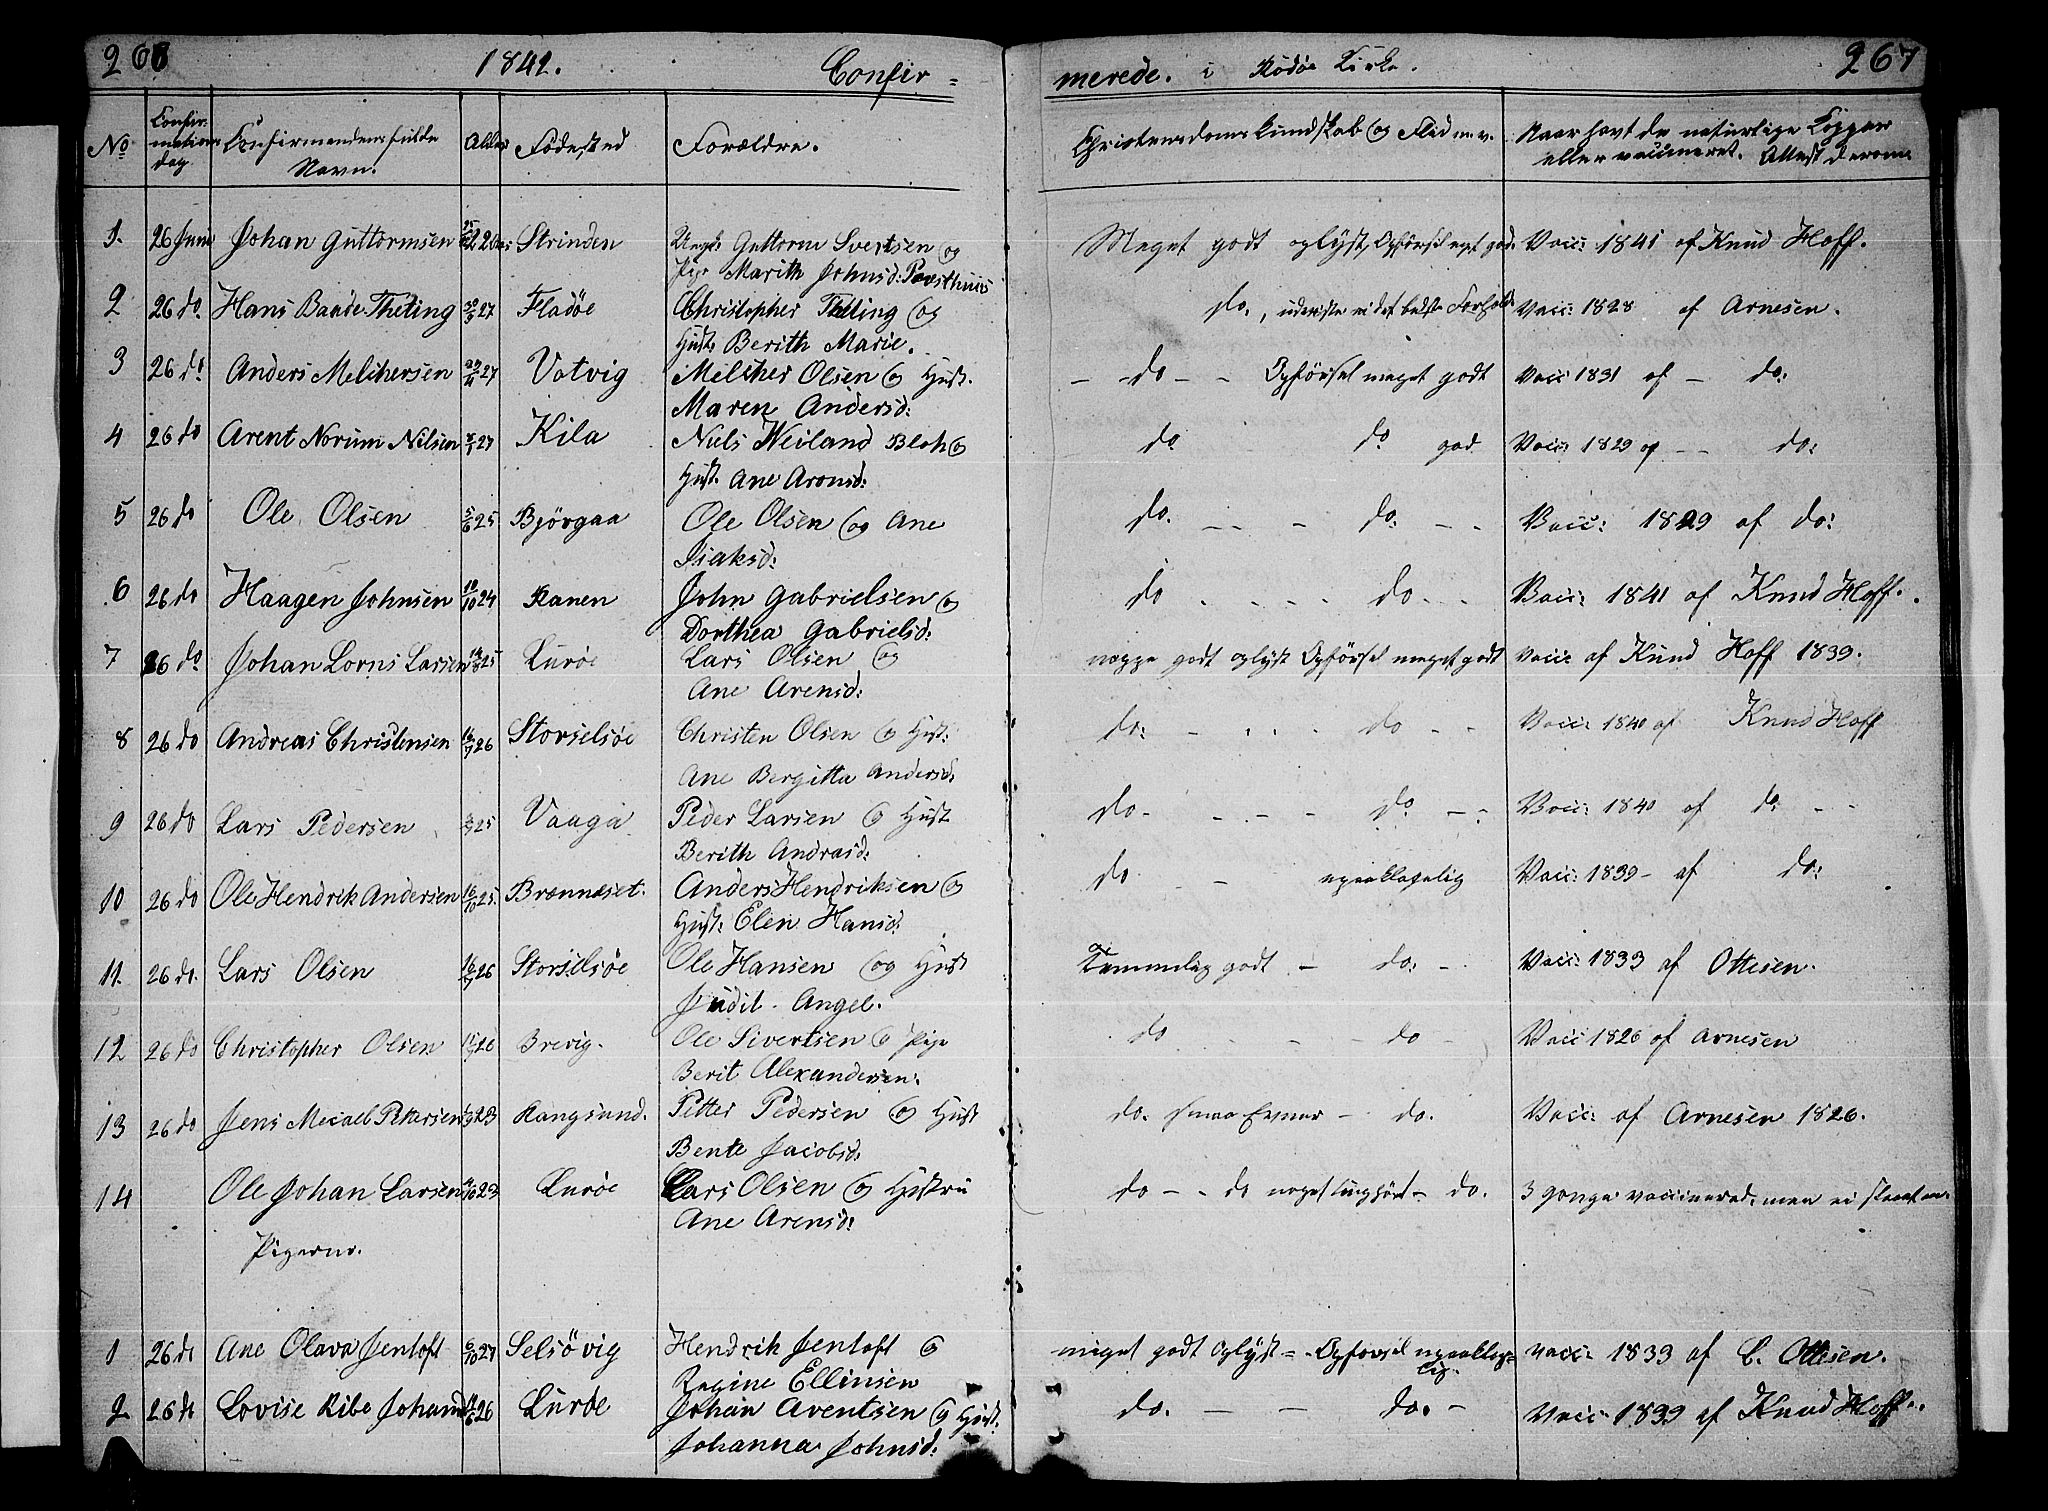 266 1842. Confir-
merede. i Rødøe Kirke. 267
No Confir-mations dag Confirmandens fulde Navn. Alder Fødested Forældre. Christendoms Kundskab og Flid m.v. Naar havt de naturlige Kopper eller vaccineret. Attest derom
1. 26 Juni Johan Guttormsen Strinden Ungk: Guttorm Sivertsen og Meget godt oplyst, Opførsel god Vacc: 1841 af Knud Hoff.
Pige Marith Johnsd:
2 26 do. Hans Baade Theting 30/3 27 Fladøe Christopher Theting og do., Vacc: 1828 af Arnesen.
Hust: Berith Marie.
3 26 do. Anders Melchersen 27 Vatvig Melcher Olsen og Hust. - do - - Opførsel meget godt Vacc: 1831 af - do:
Maren Andersd:
4 26 do Arent Norum Nilsen 27 Kila Niels Weiland Bloh og do do god Vacc: 1829 af - - do:
Hust. Ane Aronsd:
5 26 do Ole Olsen 5/6 25 Bjørgaa Ole Olsen og Ane do. - - - do. - - Vacc: 1829 af do:
Isaksd:
6 26 do Haagen Johnsen 18/10 24 Ranen John Gabrielsen og do - - - - do - - Vacc: 1841 af Knud Hoff.
Dorthea Gabrielsd:
7 26 do Johan Lorns Larsen 25 Lurøe Lars Olsen og godt oplyst Opførsel meget godt Vacc af Knud Hoff 1839.
Ane Arensd:
8 26 do Andreas Christensen 26 Storselsøe Christen Olsen og Hust: do: - - - do - - Vacc: 1840 af Knud Hoff
Ane Bergitta Andersd:
9 26 do Lars Pedersen 25 Vaaga Peder Larsen og Hust do - - - - do - - Vacc: 1840 af do - -
Berith Andrasd:
10 26 do Ole Hendrik Andersen 16/10 25 Brennæset. Anders Hendriksen og do - - upaaklagelig Vacc: 1839 - af do:
Hust: Elen Hansd:
11. 26 do. Lars Olsen 26 Storselsøe Ole Hansen og Hust Temmelig godt - do: - Vacc: 1833 af Ottesen.
Judit Angel.
12 26 do Christopher Olsen 26 Brevig. Ole Sivertsen og Pige do - - - do - Vacc: 1826 af Arnesen
Berit Alexandersen.
13 26 do Jens Mecael Pettersen 23 Rangsund. Petter Pedersen og Hust do. smaa Evner - do. Vacc: af Arnesen 1826.
Bente Jacobsd:
14 Ole Johan Larsen 23 Lurøe Lars Olsen og Hustru do - - do noget tunghørt - do. 3 gange vaccineret, men ei slaaet an.
Ane Arensd:
Pigerne.
1 26 do Ane Olava Jentoft 6/10 27 Selsøvig Hendrik Jentoft og meget godt Oplyst - Opførsel upaaklagelig. Vacc: 1833 af C. Ottesen.
Regine Ellinsen
2 26 do Lovise Ribe Johansd 26 Lurøe Johan Arentsen og Hust. do. - - do. - Vacc: 1839 af Knud Hoff.
Johanna Johnsd: